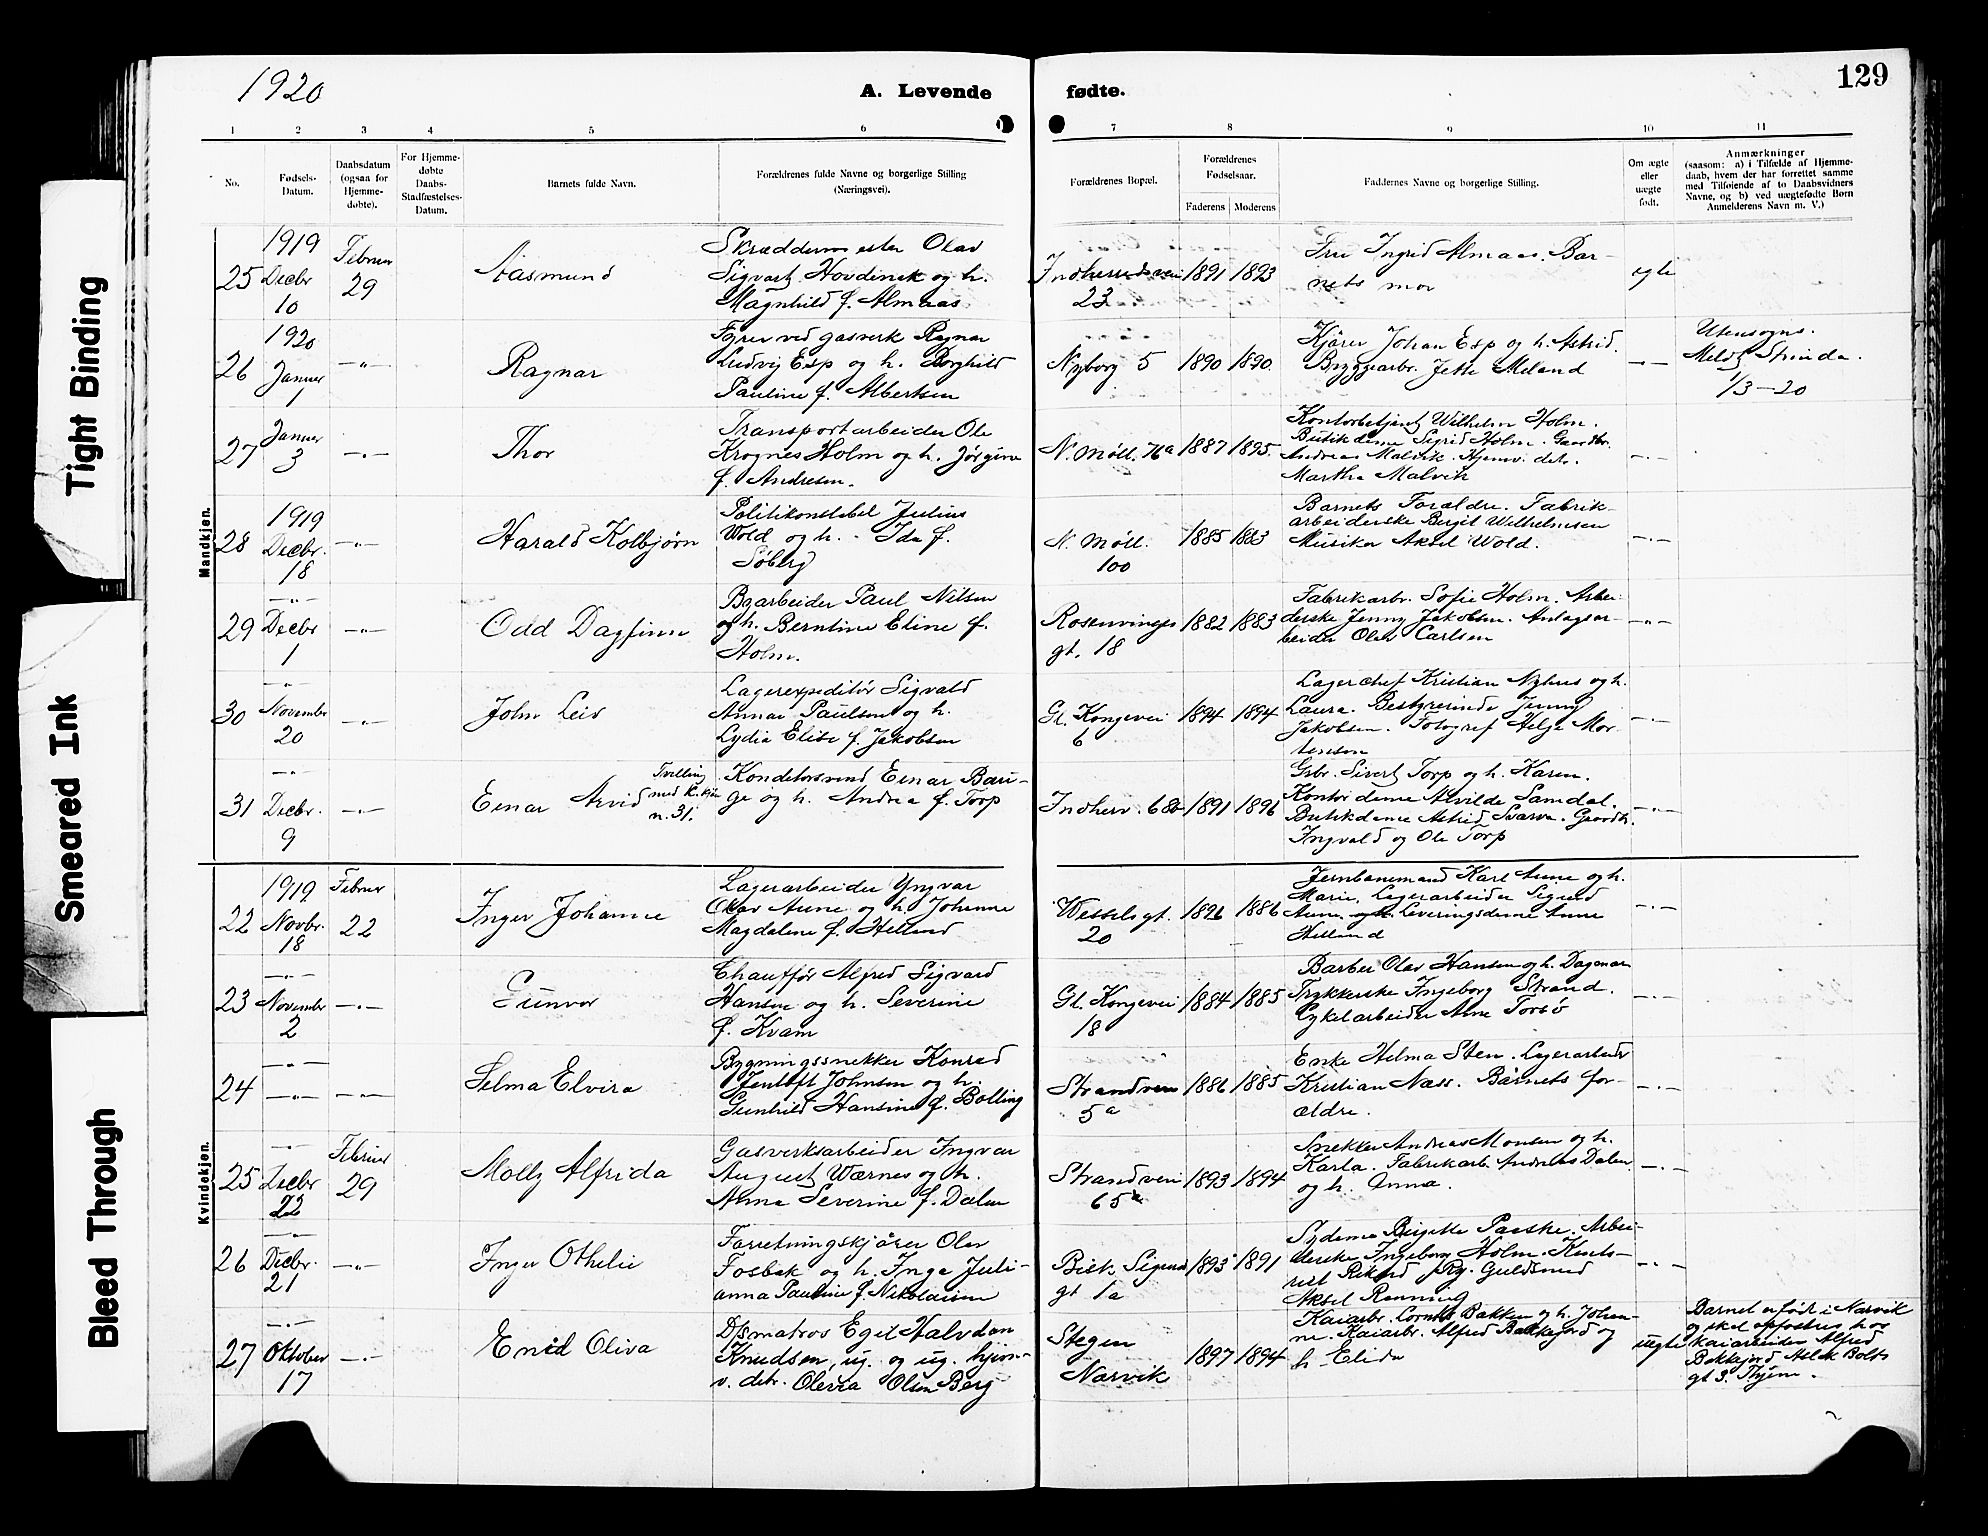 1920
A. Levende fødte.
129
1 2 3 4 5 6 7 8 9 10 11
No.
Fødsels-
Datum.
Daabsdatum
(ogsaa for
Hjemme-
døbte).
For Hjemme-
døbte
Daabs-
Stadfæstelses-
Datum.
Barnets fulde Navn.
Forældrenes fulde Navne og borgerlige Stilling
(Næringsvei).
Forældrenes Bopæl.
Forældrenes
Fødselsaar.
Faderens Moderens
Faddernes Navne og borgerlige Stilling.
Om ægte
eller
uægte
født.
Anmærkninger
(saasom: a) i Tilfælde af Hjemme-
daab, hvem der har forrettet samme
med Tilføiende af to Daabsvidners
Navne, og b) ved uægtefødte Børn
Anmelderens Navn m. V.)
Tight Binding
Smeared Ink
Bleed Through
Mandkjøn.
25
1919
Decbr
10
Februar
29
Aasmund
Skræddermester Olav
Sigvart Hovdenak og h.
Magnhild f. Almaas
Indherredsvei
23
1891 1893
Fru Ingrid Almaas. Bar-
nets mor
egte
26
1920
Januar
1
-"-
Ragnar
Fyrer ved gasverk Ragnar
Ludvig Esp og h. Borghild
Pauline f. Albertsen
Nyborg 5
1890 1890.
Kjører Johan Esp og h. Astrid.
Bryggearbr. Jette Meland
-"-
Utensogns.
Meldt Strinda.
1/3-20
27
Januar
3
-"-
Thor
Transportarbeider Ole
Krognes Holm og h. Jørgine
f. Andresen.
N. Møll. 76a
1887 1895.
Kontorbetjent Wilhelm Holm.
Butikdame Sigrid Holm. Gaardbr.
Andreas Malvik. Hjemv. dtr.
Martha Malvik
-"-
28
1919
Decbr.
18
-"-
Harald Kolbjørn
Politikonstabel Julius
Wold og h. - Ida f.
Søberg
N. Møll.
100
1885 1883
Barnets Forældre. Fabrik-
arbeiderske Bergit Wilhelmsen
Musiker Aksel Wold.
-"-
29
-"-
Decbr
1
-"-
Odd Dagfinn
Byarbeider Paul Nilsen
og h. Berntine Eline f.
Holm.
Rosenvinges
gt. 18
1882 1883
Fabrikarbr. Sofie Holm. Arbei-
derske Jenny Jakobsen. Anlagsar-
beider Olav Carlsen
-"-
30
-"-
November
20
-"-
John Leif
Lagerexpeditør Sigvald
Annar Paulsen og h.
Lydia Elise f. Jakobsen
Gl. Kongevei
6
1894 1894
Lagerchef Kristian Nyhus og h.
Laura. Bestyrerinde Jenny
Jakobsen. Fotograf Helge Mor-
tensen
-"-
31
-"-
Decbr.
9
-"-
Einar Arvid
Tvilling
med K.kjøn
n. 31.
Konditorsvend Einar Bau-
ge og h. Andrea f. Torp
Indherv. 68b
1891 1896
Gsbr. Sivert Torp og h. Karen.
Kontordame Alvilde Samdal.
Butikdame Astrid Svarva. Gaardbr.
Ingvald og Ole Torp
-"-
Kvindekjøn.
22
1919
Novbr.
18
Februar
22
Inger Johanne
Lagerarbeider Yngvar
Olav Aune og h. Johanne
Magdalene f. Helland
Wesselsgt.
20
1896 1886
Jernbanemand Karl Aune og h.
Marie. Lagerarbeider Sigurd
Aune. Leveringsdame Anna
Helland
-"-
23
-"-
November
2
-"-
Gunvor
Chauffør Alfred Sigvard
Hansen og h. Severine
f. Kvam
Gl. Kongevei
18
1884 1885
Barber Olav Hansen og h. Dagmar
Trykkerske Ingeborg Strand.
Cykelarbeider Arne Torsø
-"-
24
-"-
-"-
-"-
Selma Elvira
Bygningssnekker Konrad
Jentoft Johnsen og h.
Gunhild Hansine f. Bolling
Strandveien
5a
1886 1885
Enke Helma Sten. Lagerarbeider
Kristian Næss. Barnets for-
ældre.
-"-
25
-"-
Decbr
22
Februar
29
Molly Alfrida
Gasverksarbeider Ingvar
August Wærnes og h.
Anna Severine f. Dalen
Strandvei
65a
1893 1894
Snekker Andreas Monsen og h.
Karla. Fabrikarb. Andreas Dalen
og h. Anna.
-"-
26
-"-
Decbr.
21
-"-
Inger Othelie
Forretningskjører Olav
Fosbak og h. Inga Juli-
anna Pauline f. Nikolaisen
Bisk. Sigurds
gt 1a
1893 1891
Sydame Birgitte Paaske. Arbei-
derske Ingeborg Holm. Kunts-
Rikard Ry. Guldsmed
Aksel Rønning
-"-
27
-"-
Oktober
17
-"-
Enid Oliva
D/smatros Egil Halvdan
Knudsen, ug. og ug. hjem-
v. datr. Olevia Olsen Berg
Stegen
Narvik
1897 1894
Kaiarbr. Cornel. Bakken og h. Johan-
ne. Kaiarbr. Alfred Bakkejord og
h. Elida
uegte
Barnet er født i Narvik
og skal opfostres hos
kaiarbeider Alfred
Bakkejord Aslak Bolts
gt 3. Thjem.